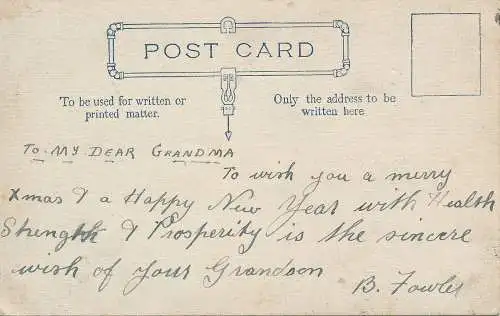 POST CARD
To be used for written or
printed matter.
Only the address to be
written here.
To MY DEAR GRANDMA
To wish you a merry
Xmas & a Happy New Year with Health
Strength & Prosperity is the sincere
wish of your Grandson
B. Fowles